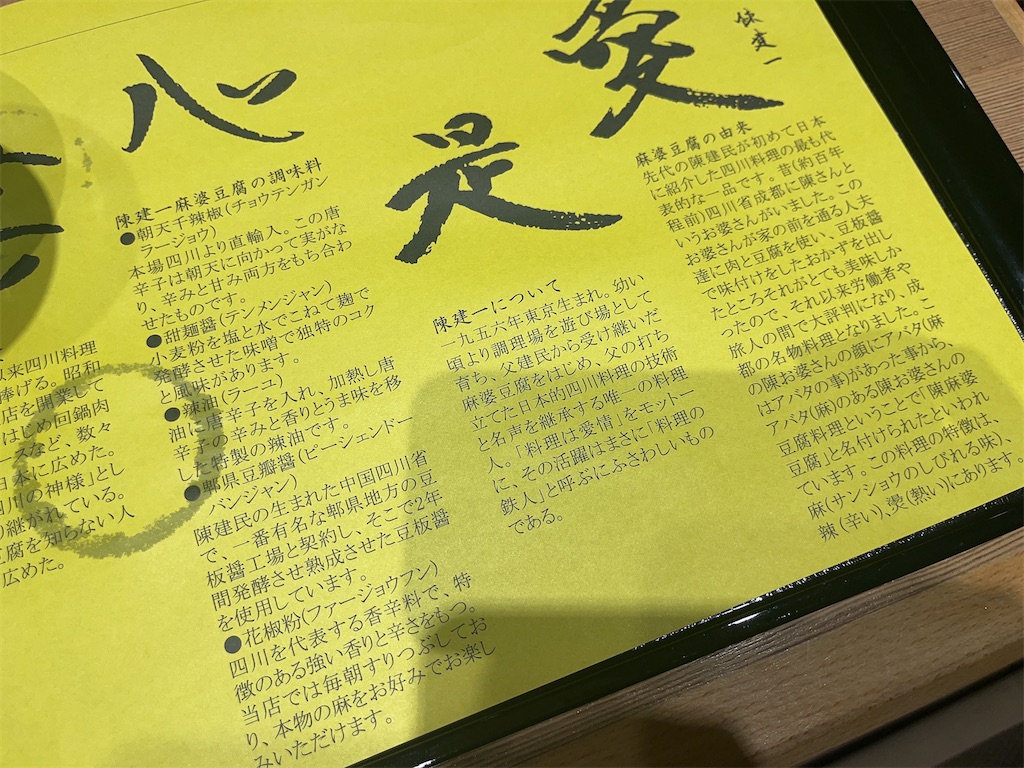 陳建一
愛
是
心
麻婆豆腐の由来
先代の陳建民が初めて日本
に紹介した四川料理の最も代
表的な一品です。昔(約百年
程前)四川省成都に陳さんと
いうお婆さんがいました。この
お婆さんが家の前を通る人夫
達に肉と豆腐を使い、豆板醤
で味付けをしたおかずを出し
たところそれがとても美味しか
ったので、それ以来労働者や
旅人の間で大評判になり、成
都の名物料理となりました。こ
の陳お婆さんの顔にアバタ(麻
はアバタの事)があった事から、
アバタ(麻)のある陳お婆さんの
豆腐料理ということで「陳麻婆
豆腐」と名付けられたといわれ
ています。この料理の特徴は、
麻(サンショウのしびれる味)、
辣(辛い)、燙(熱い)にあります。
陳建一について
一九五六年東京生まれ。幼い
頃より調理場を遊び場として
育ち、父建民から受け継いだ
麻婆豆腐をはじめ、父の打ち
立てた日本的四川料理の技術
と名声を継承する唯一の料理
人。「料理は愛情」をモットー
に、その活躍はまさに「料理の
鉄人」と呼ぶにふさわしいもの
である。
陳建一麻婆豆腐の調味料
●朝天干辣椒(チョウテンガン
ラージョウ)
本場四川より直輸入。この唐
辛子は朝天に向かって実がな
り、辛みと甘み両方をもち合わ
せたものです。
●甜麺醤(テンメンジャン)
小麦粉を塩と水でこねて麹で
発酵させた味噌で独特のコク
と風味があります。
●辣油(ラーユ)
油に唐辛子を入れ、加熱し唐
辛子の辛みと香りとうま味を移
した特製の辣油です。
●郫県豆瓣醤(ピーシェンドー
バンジャン)
陳建民の生まれた中国四川省
で、一番有名な郫県地方の豆
板醤工場と契約し、そこで2年
間発酵させ熟成させた豆板醤
を使用しています。
●花椒粉(ファージョウフン)
四川を代表する香辛料で、特
徴のある強い香りと辛さをもつ。
当店では毎朝すりつぶしてお
り、本物の麻をお好みでお楽し
みいただけます。
以来四川料理
捧げる。昭和
店を開業して
はじめ回鍋肉
スなど、数々
日本に広めた。
四川の神様」とし
り継がれている。
豆腐を知らない人
広めた。